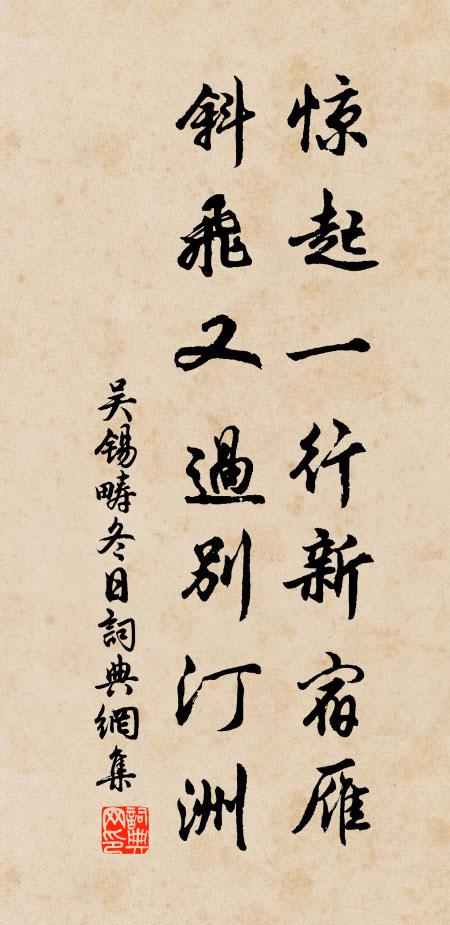 惊起一行新宿雁
斜飛又過別汀洲
吴锡疇冬日詞典網集
詞典网印